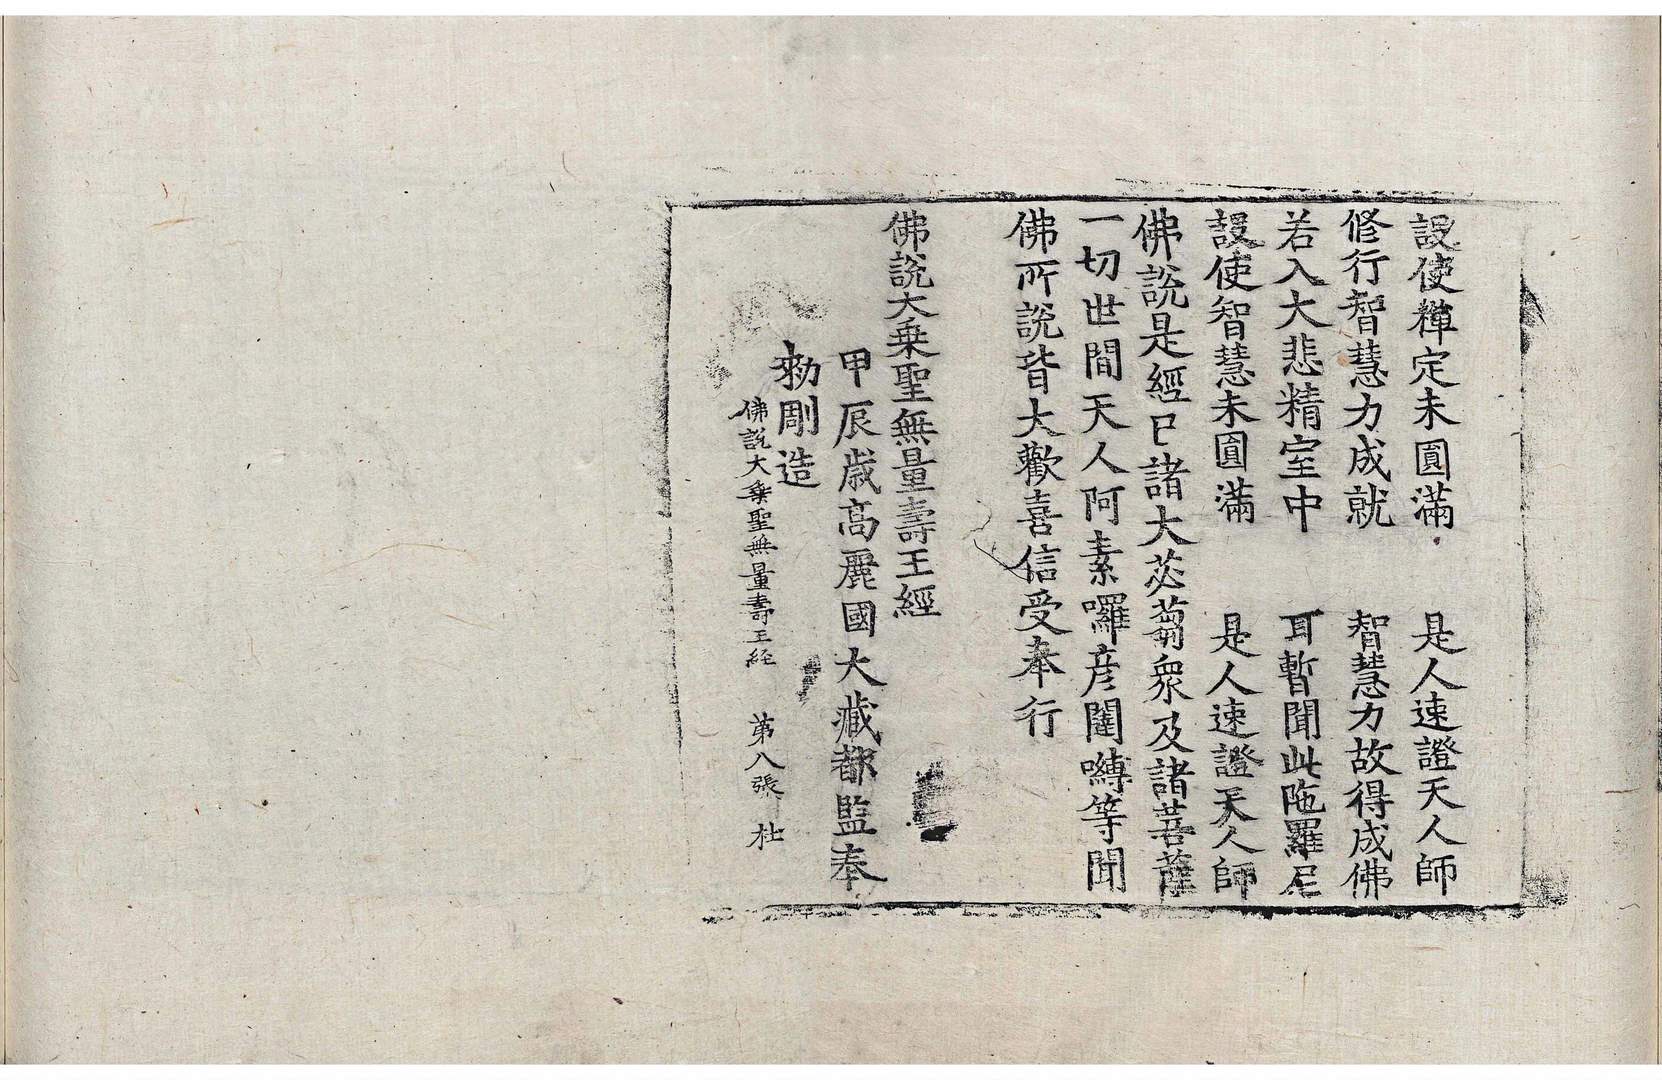 設使禪定未圓滿　是人速證天人師
修行智慧力成就　智慧力故得成佛
若入大悲精室中　耳暫聞此陁羅尼
設使智慧未圓滿　是人速證天人師
佛說是經已諸大苾蒭眾及諸菩薩
一切世間天人阿素囉彦闥嚩等聞
佛所說皆大歡喜信受奉行
佛說大乗聖無量壽王經
甲辰歲高麗國大藏都監奉
勑剛造
佛說大乗聖無量壽王経　第八張　杜